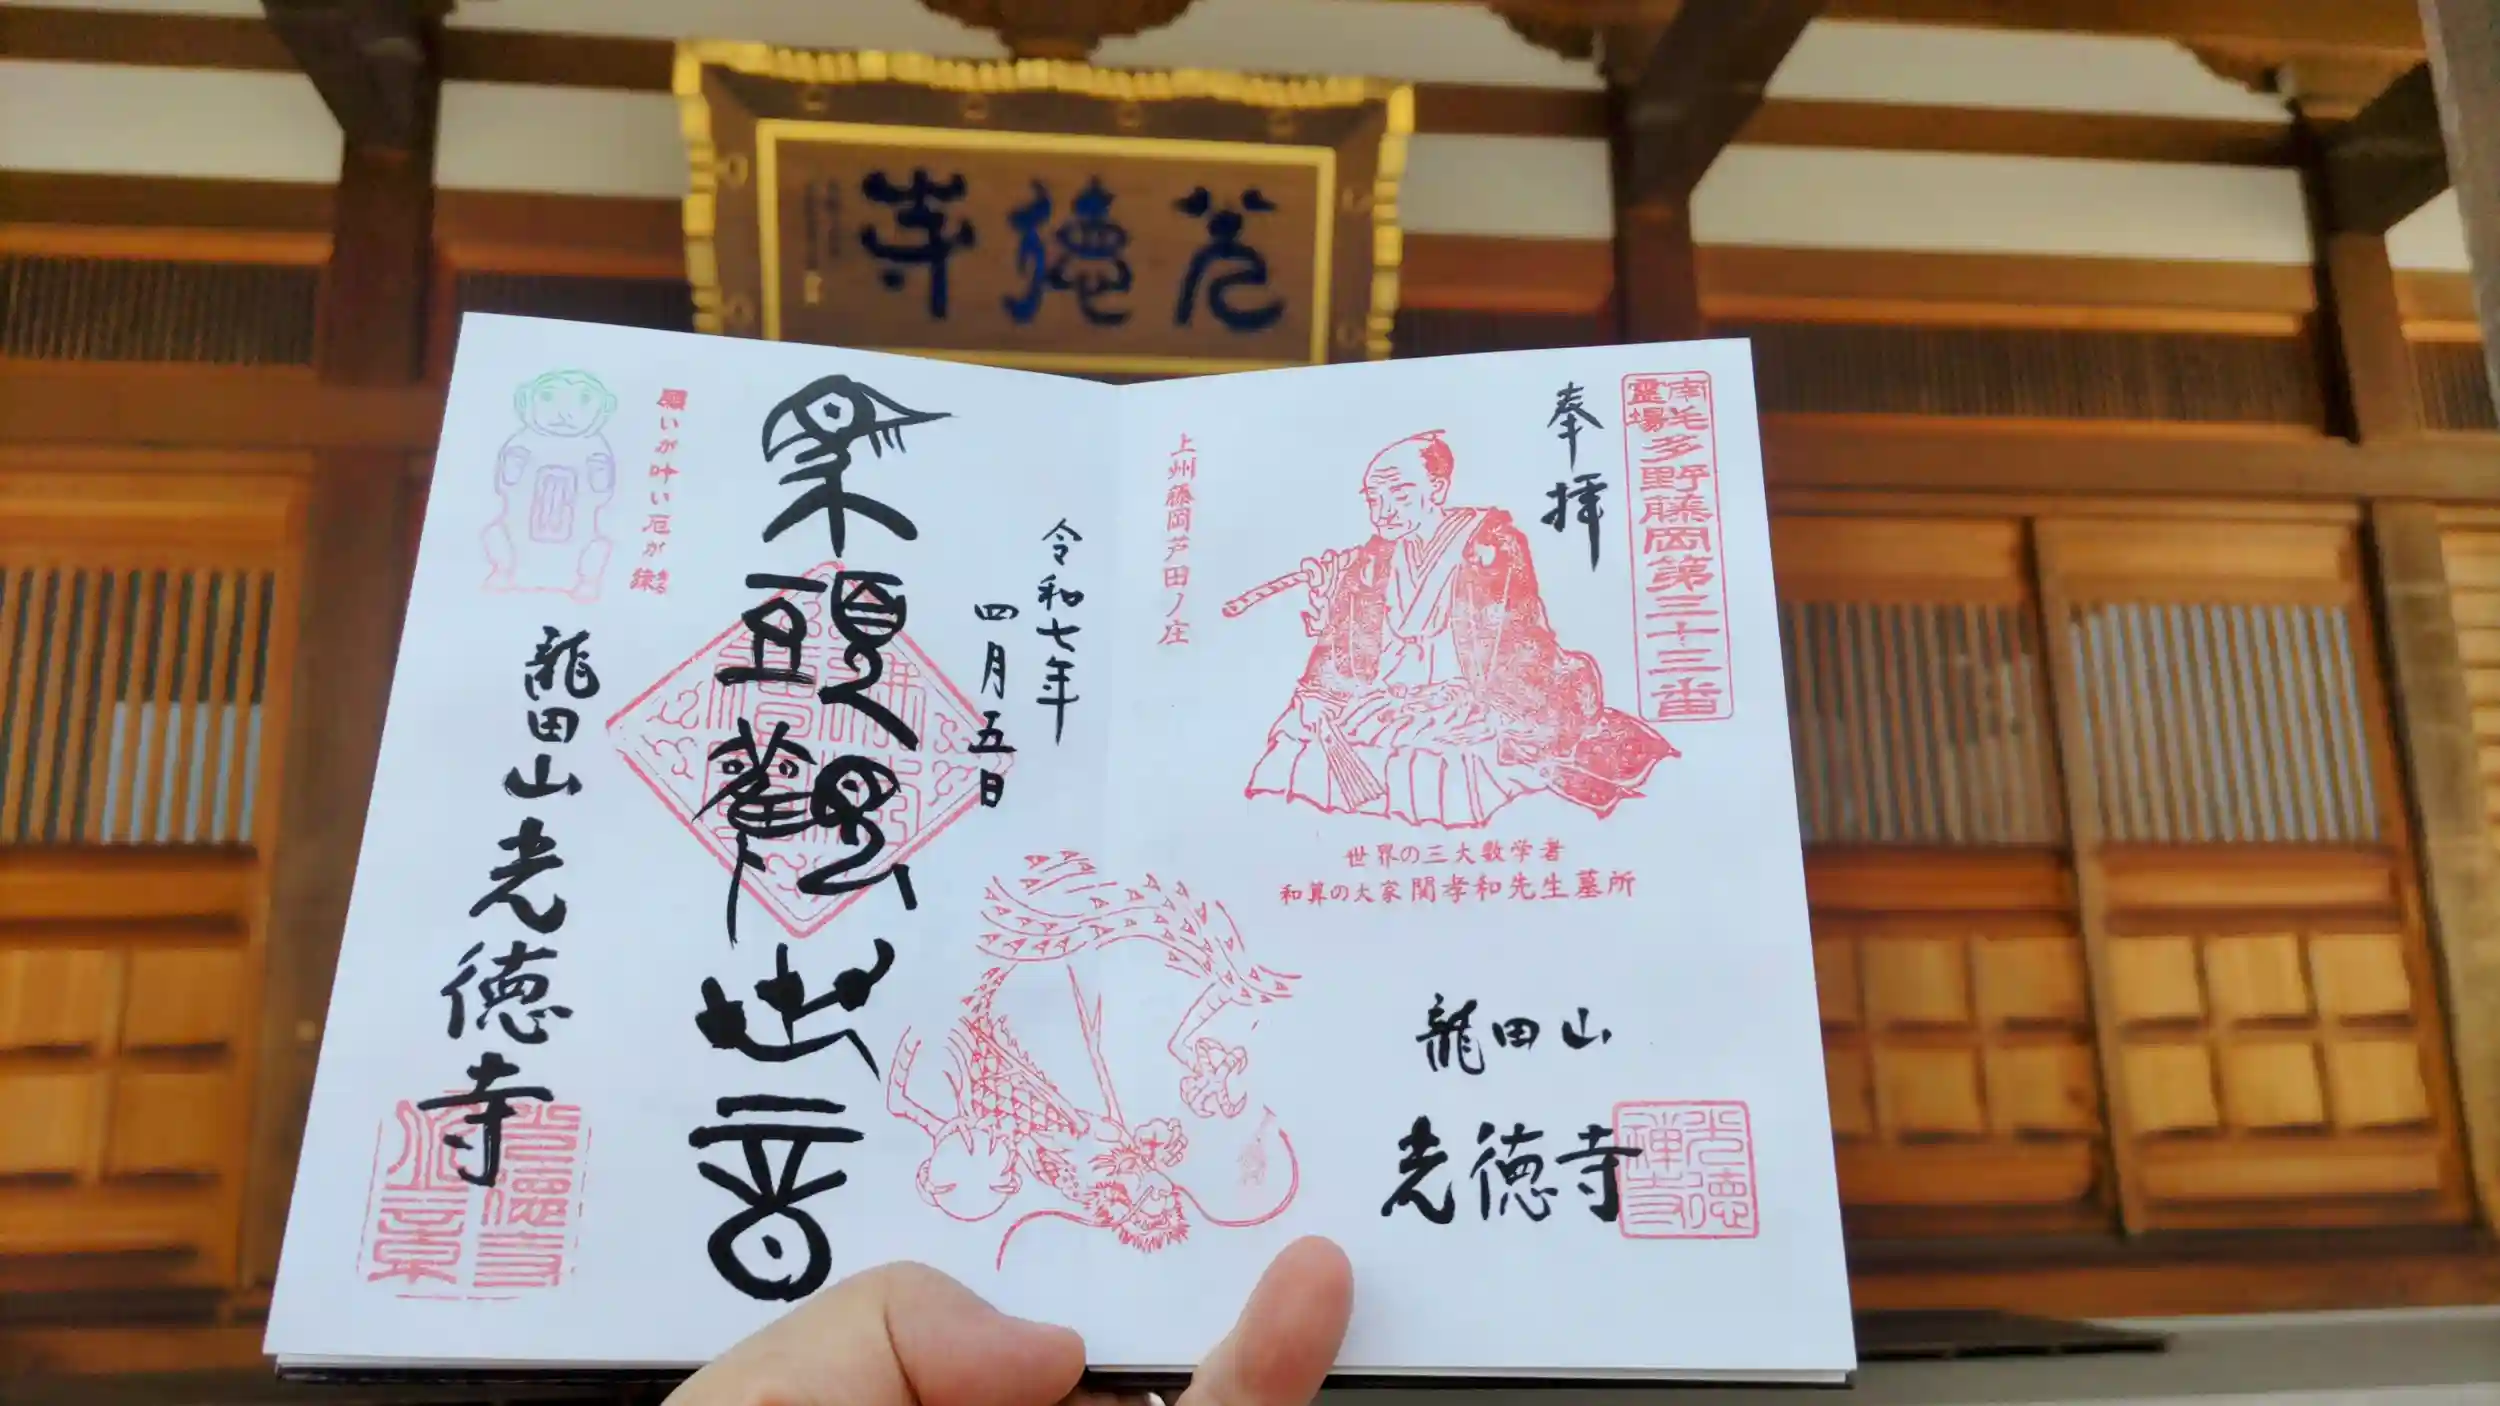 光徳寺
南毛霊場
多野藤岡第三十三番
奉拝
上州藤岡芦田ノ庄
世界の三大数学者
和算の大家関孝和先生墓所
龍田山
光徳寺
光徳禅寺
令和七年
四月五日
頭觀世音
願いが叶い厄が
龍田山光徳寺